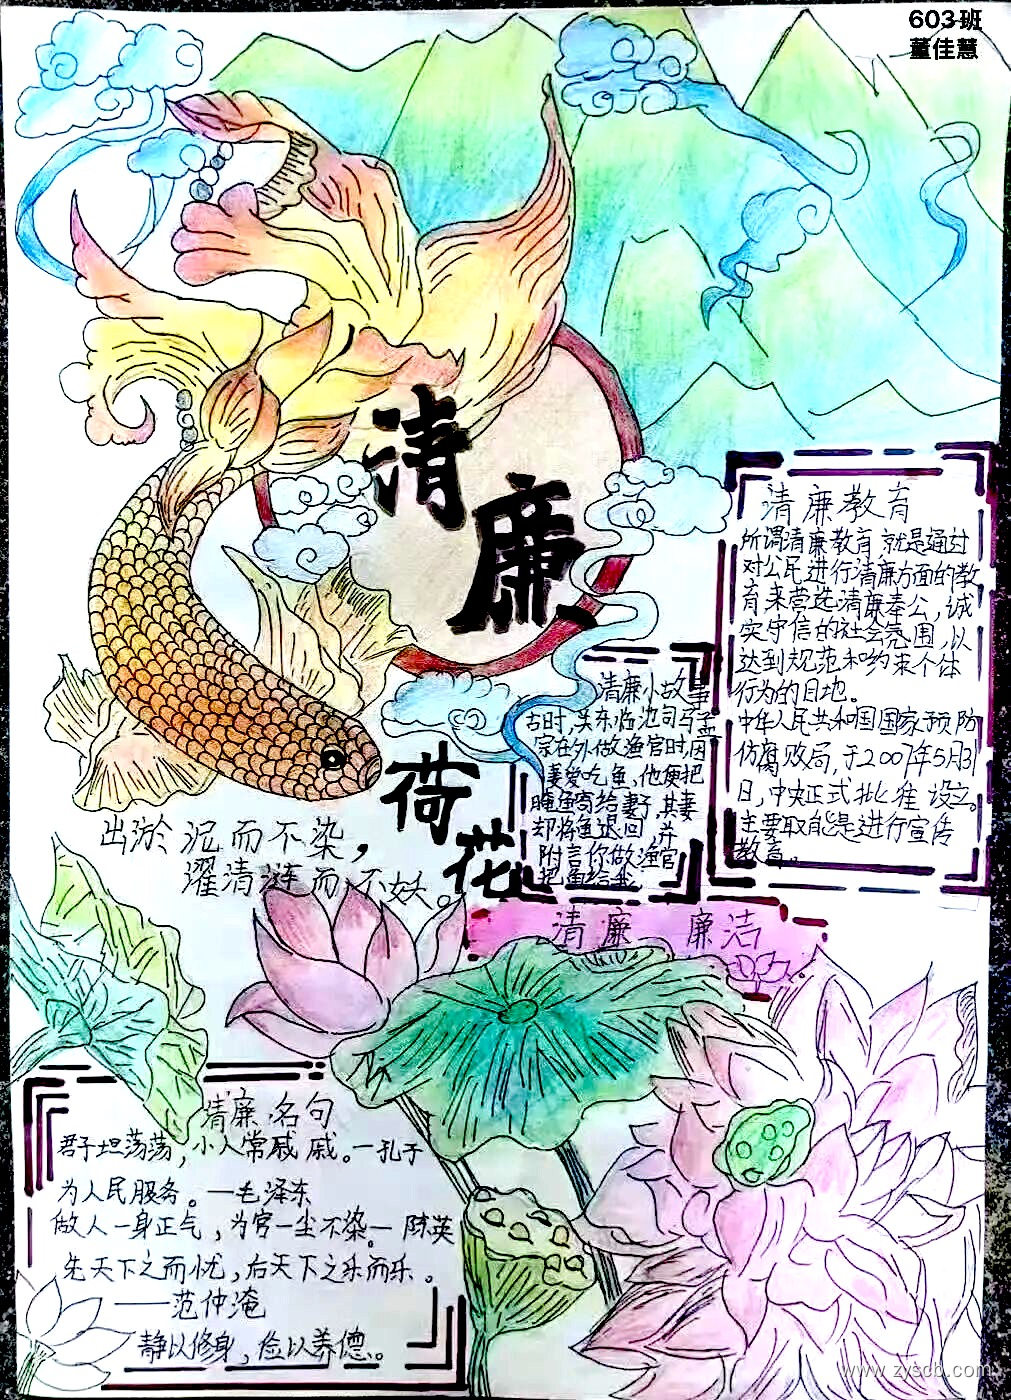 603班
董佳慧
清
廉
清廉教育
所谓清廉教育,就是通过
对公民进行清廉方面的教
育来营造清廉奉公,诚
实守信的社会氛围,以
达到规范和约束个体
行为的目地。
中华人民共和国国家预防
仿腐败局,于2007年5月31
日,中央正式批准设立。
主要职能是进行宣传
教育。
清廉小故事
古时,吴东临池司马孟
宗在外做渔官时,因
妻爱吃鱼,他便把
腌鱼寄给妻子,其妻
却将鱼退回,并
附言你做渔官
把鱼给我
荷
花
出淤泥而不染,
濯清涟而不妖。
清廉 廉洁
清廉名句
君子坦荡荡,小人常戚戚。一孔子
为人民服务。—毛泽东
做人一身正气,为官一尘不染。— 陈英
先天下之而忧,后天下之乐而乐。
——范仲淹
静以修身,俭以养德。
www.zyscb.com